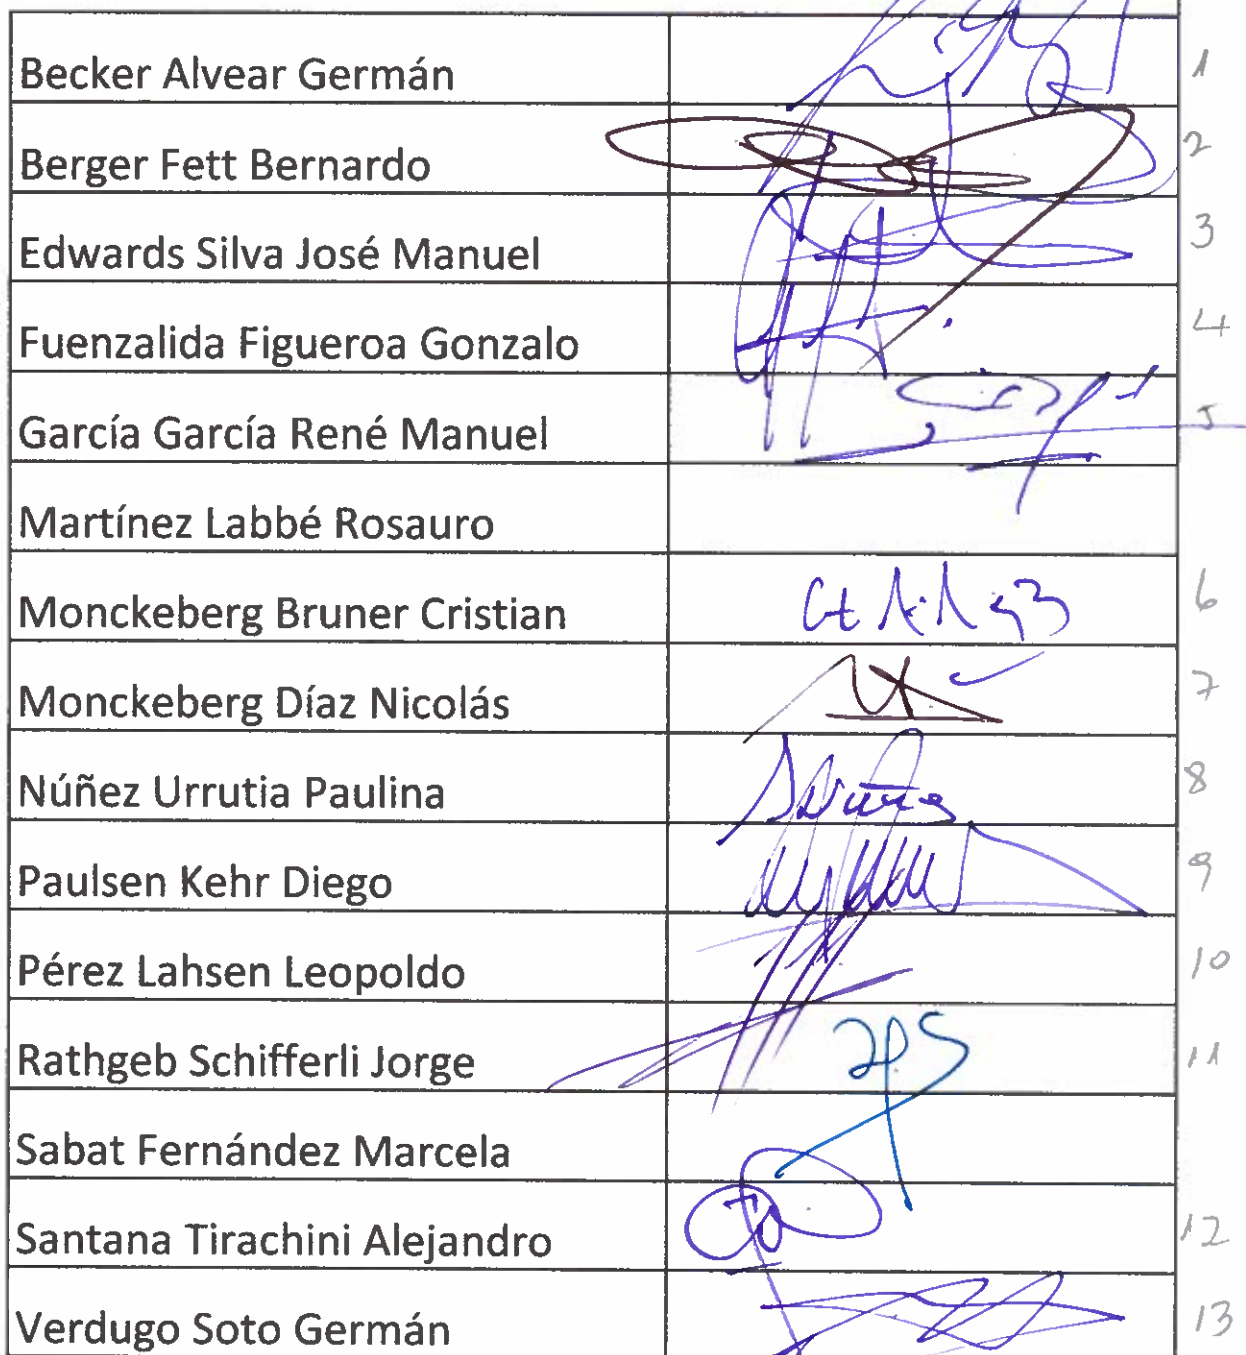 Becker Alvear Germán 1
Berger Fett Bernardo 2
Edwards Silva José Manuel 3
Fuenzalida Figueroa Gonzalo 4
García García René Manuel 5
Martínez Labbé Rosauro
Monckeberg Bruner Cristian 6
Monckeberg Díaz Nicolás 7
Núñez Urrutia Paulina 8
Paulsen Kehr Diego 9
Pérez Lahsen Leopoldo 10
Rathgeb Schifferli Jorge 11
Sabat Fernández Marcela
Santana Tirachini Alejandro 12
Verdugo Soto Germán 13